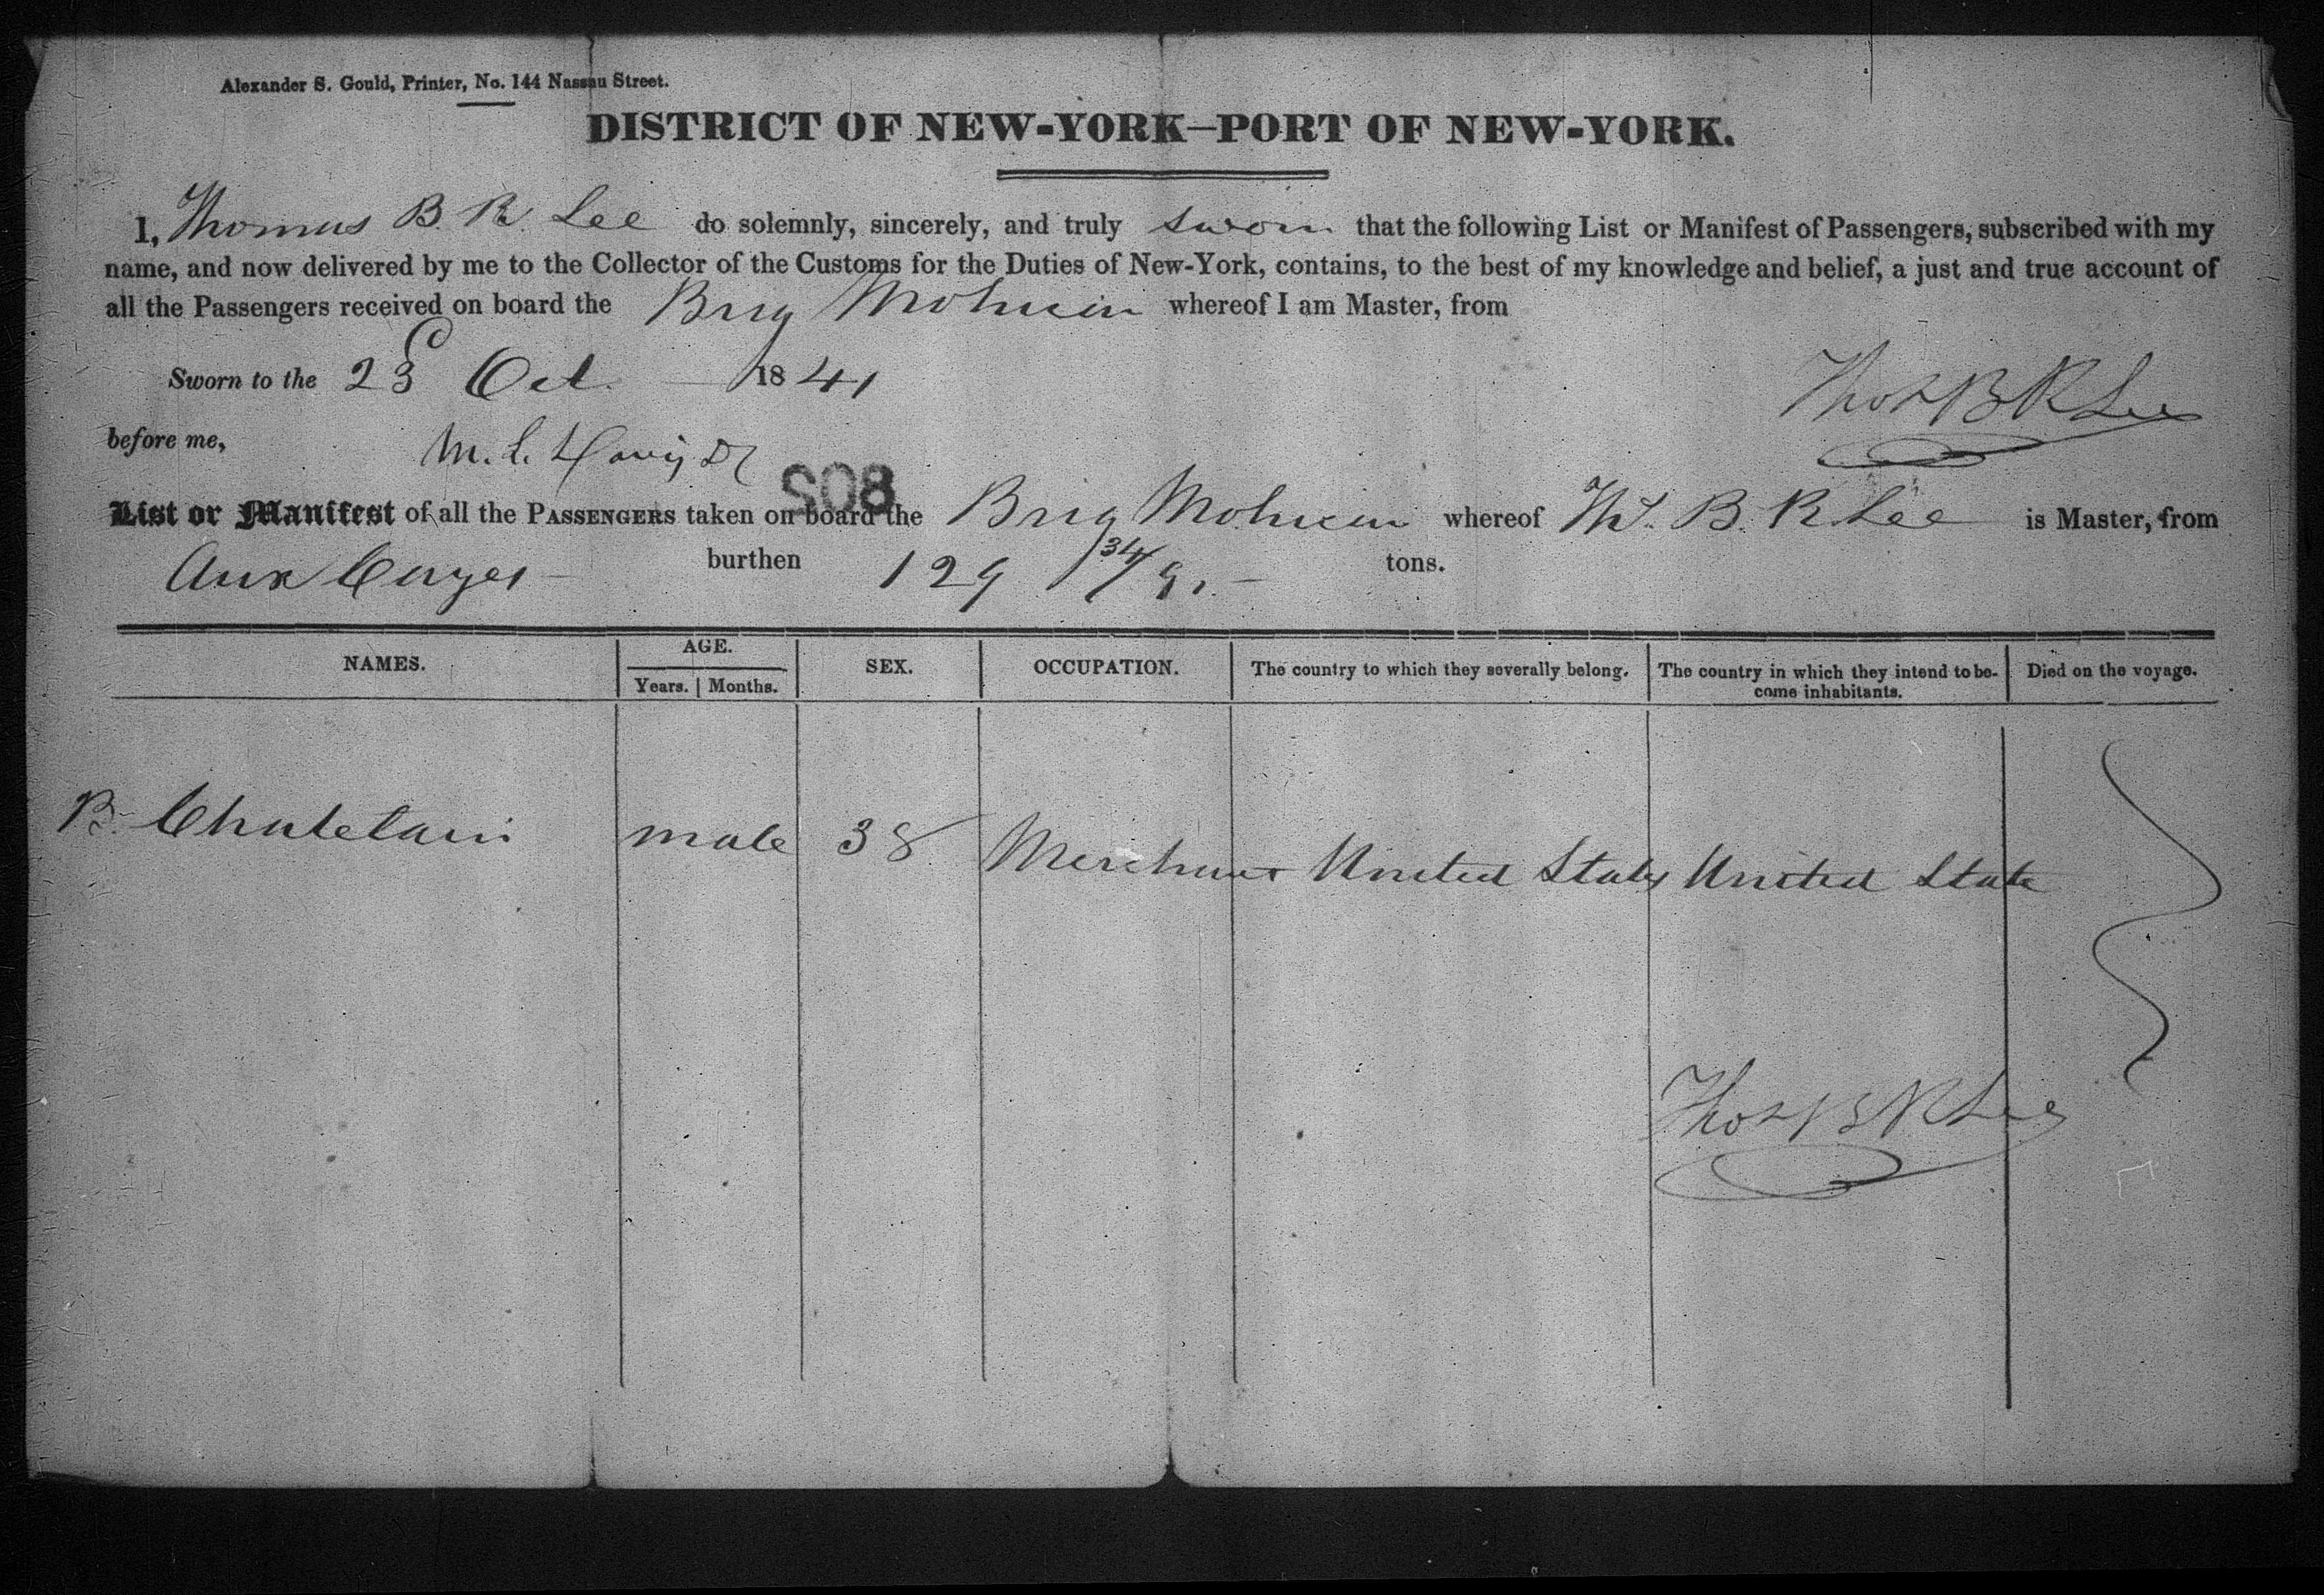 Alexander S. Gould, Printer, No. 144 Nassau Street.
DISTRICT OF NEW-YORK—PORT OF NEW-YORK.
I, Thomas B. R. Lee do solemnly, sincerely, and truly swear that the following List or Manifest of Passengers, subscribed with my
name, and now delivered by me to the Collector of the Customs for the Duties of New-York, contains, to the best of my knowledge and belief, a just and true account of
all the Passengers received on board the Brig Mohican whereof I am Master, from
Sworn to the 23 Oct. 1841
Thos B R Lee
before me,
808
List or Manifest of all the PASSENGERS taken on board the Brig Mohican whereof Th. B. R. Lee is Master, from
Aux Cayes burthen 129 34/95 tons.
NAMES. AGE. SEX. OCCUPATION. The country to which they severally belong. The country in which they intend to be-
Years. Months. come inhabitants. Died on the voyage.
B. Chatelain male 38 Merchant United States United State
Thos B R Lee